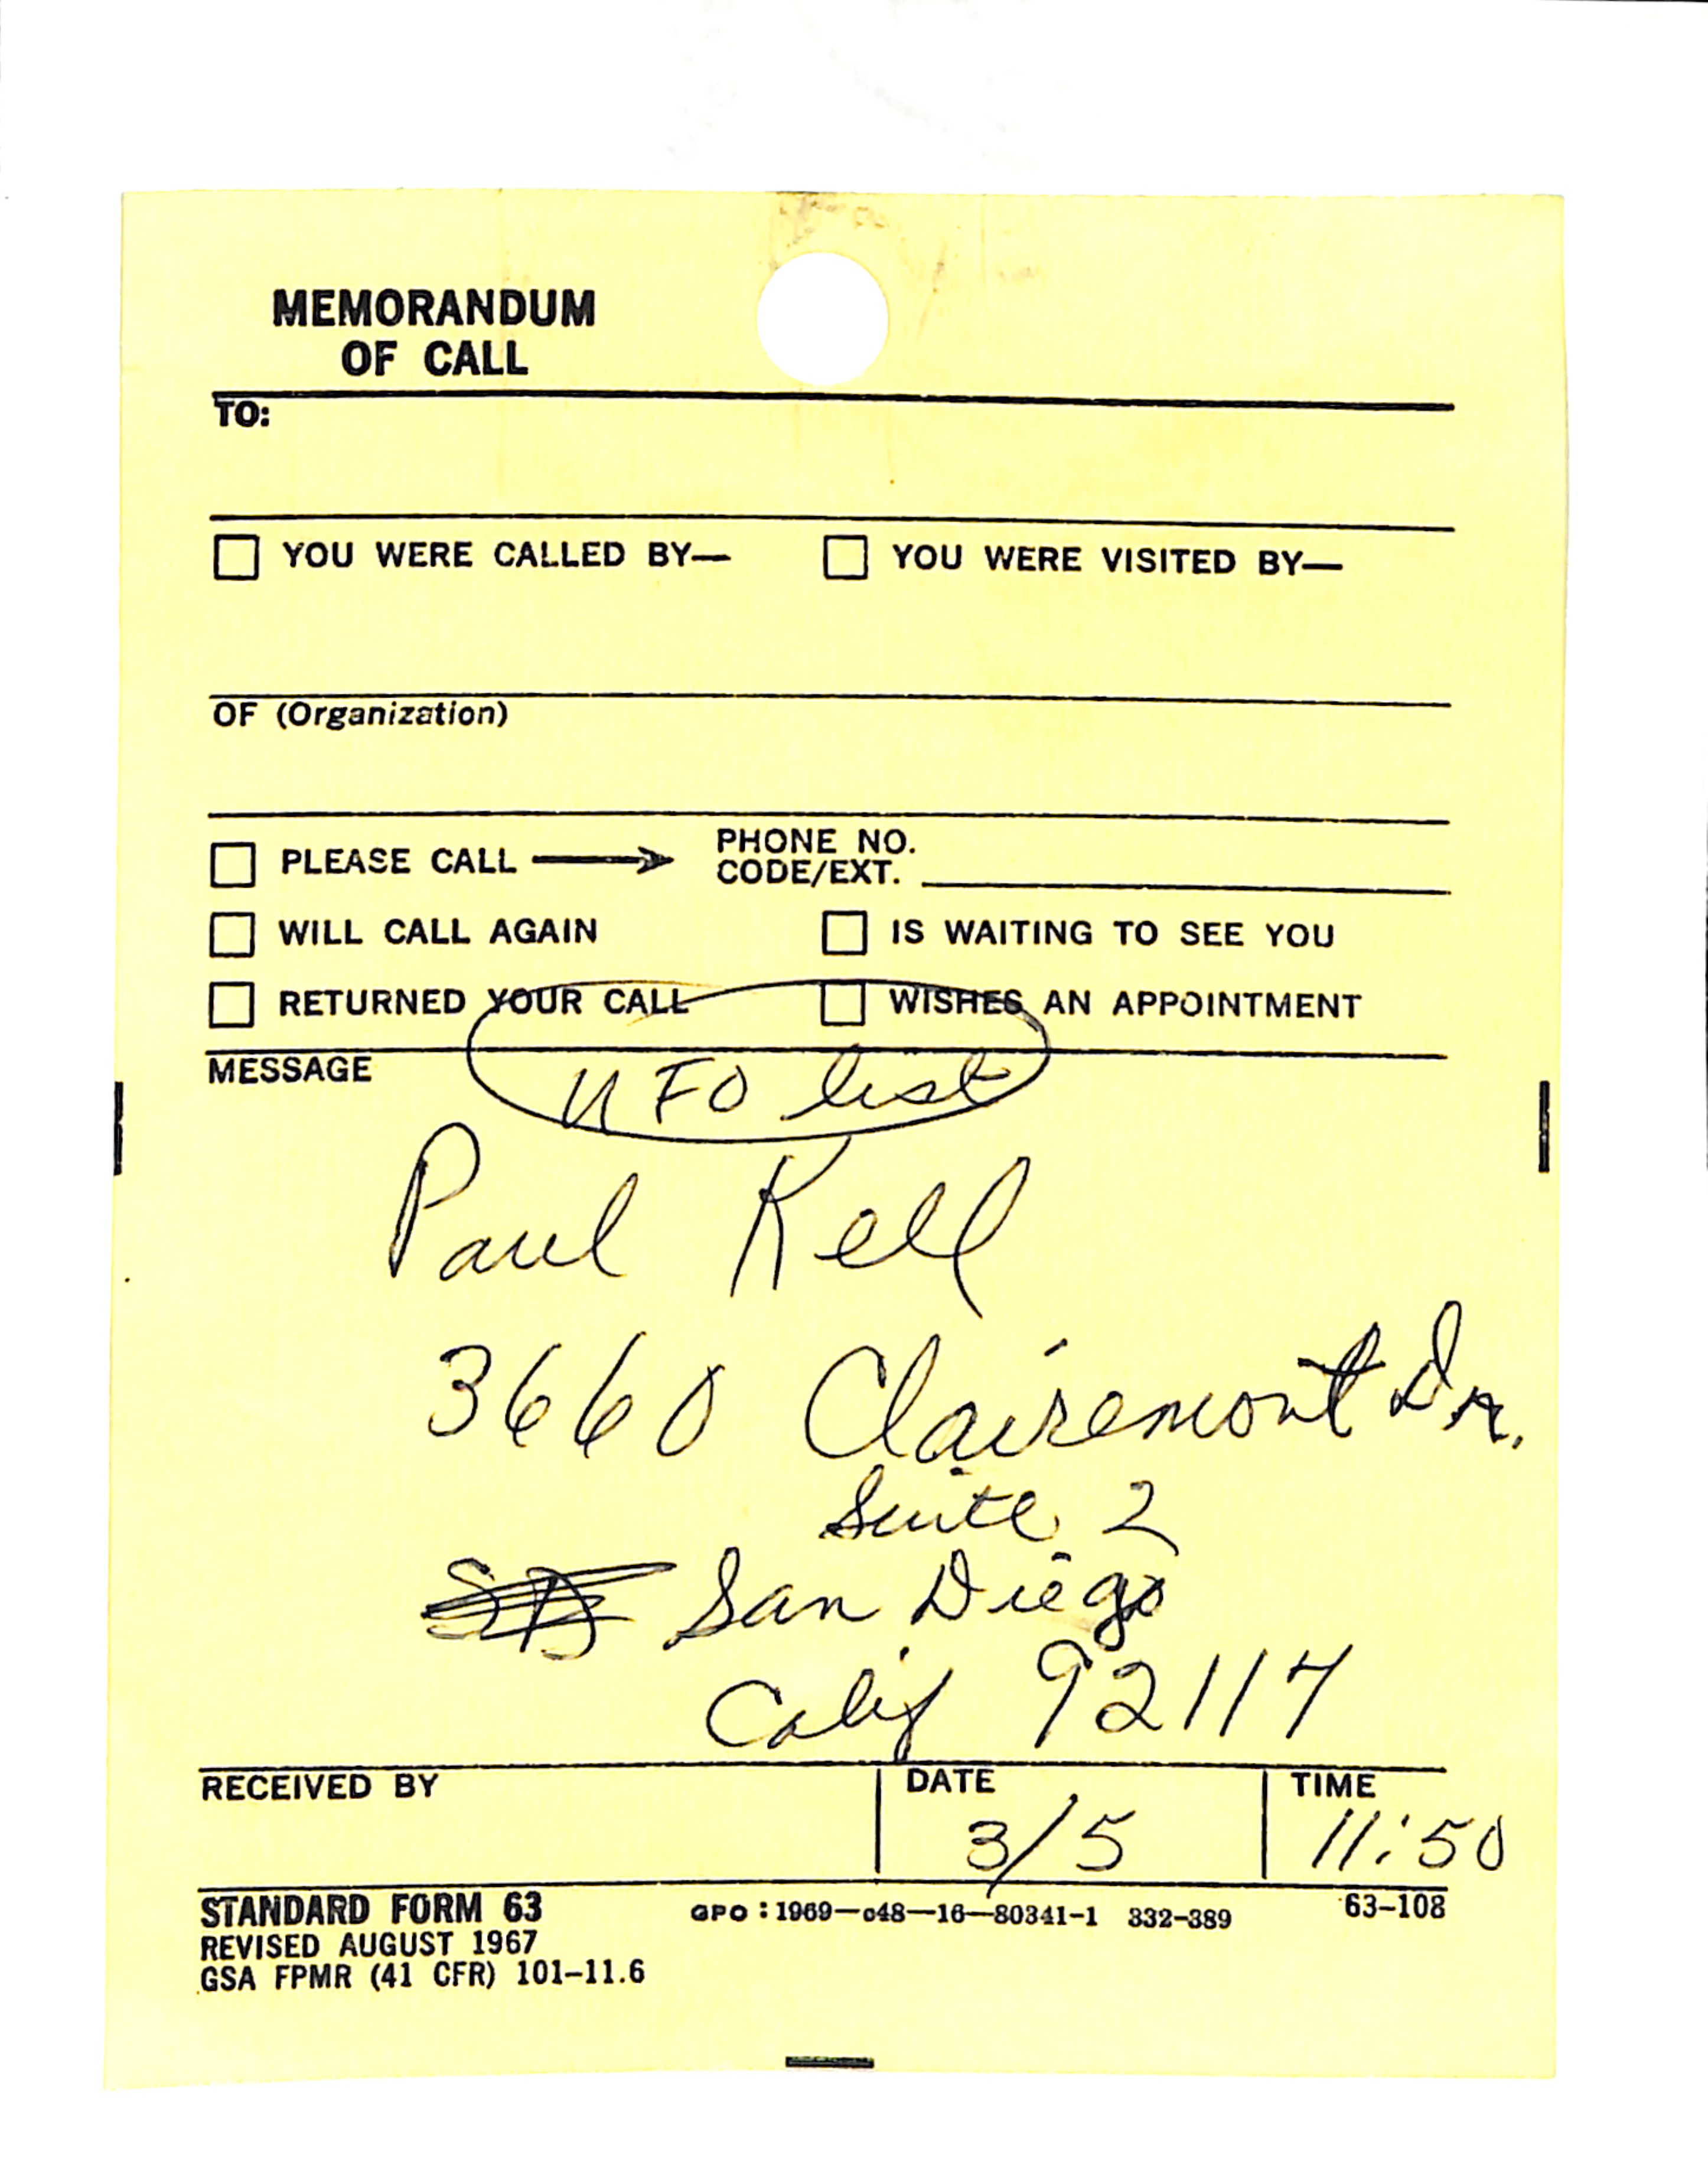 MEMORANDUM
OF CALL
TO:
YOU WERE CALLED BY— YOU WERE VISITED BY—
OF (Organization)
PLEASE CALL → PHONE NO.
CODE/EXT.
WILL CALL AGAIN IS WAITING TO SEE YOU
RETURNED YOUR CALL WISHES AN APPOINTMENT
MESSAGE UFO list
Paul Kell
3660 Clairemont Dr.
Suite 2
San Diego
Calif 92117
RECEIVED BY DATE TIME
3/5 11:50
STANDARD FORM 63 GPO : 1969—c48—16—80341-1 332-389 63-108
REVISED AUGUST 1967
GSA FPMR (41 CFR) 101-11.6